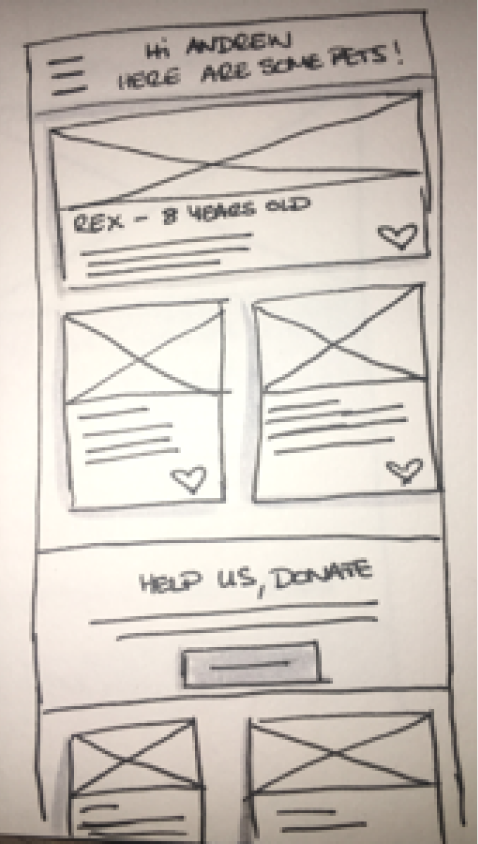 Hi ANDREW
HERE ARE SOME PETS!
REX - 8 YEARS OLD
HELP US, DONATE